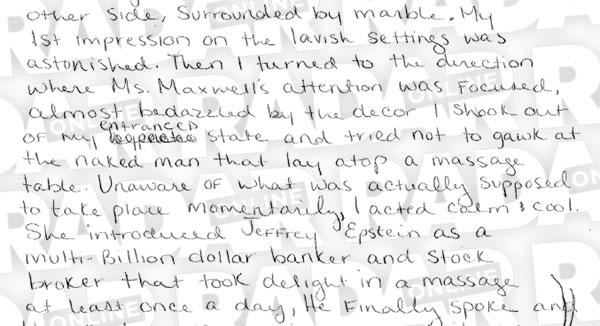 other side, surrounded by marble. My
1st impression on the lavish settings was
astonished. Then I turned to the direction
where Ms. Maxwell's attention was focused,
almost bedazzled by the decor I shook out
entranced
of my state and tried not to gawk at
the naked man that lay atop a massage
table. Unaware of what was actually supposed
to take place momentarily, I acted calm & cool.
She introduced Jeffrey Epstein as a
multi-Billion dollar banker and stock
broker that took delight in a massage
at least once a day, He finally spoke and